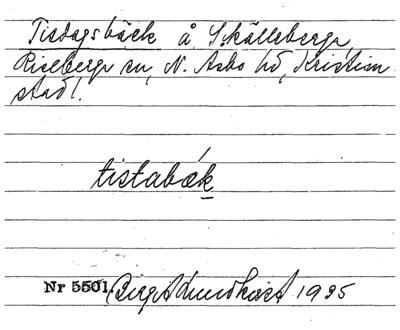 Tisdagsbäck å Skälleberga
Riseberga sn, N. Åsbo hd, Kristian-
stad l.
tistabæk
Nr 5501. Birgit Lundkvist 1935